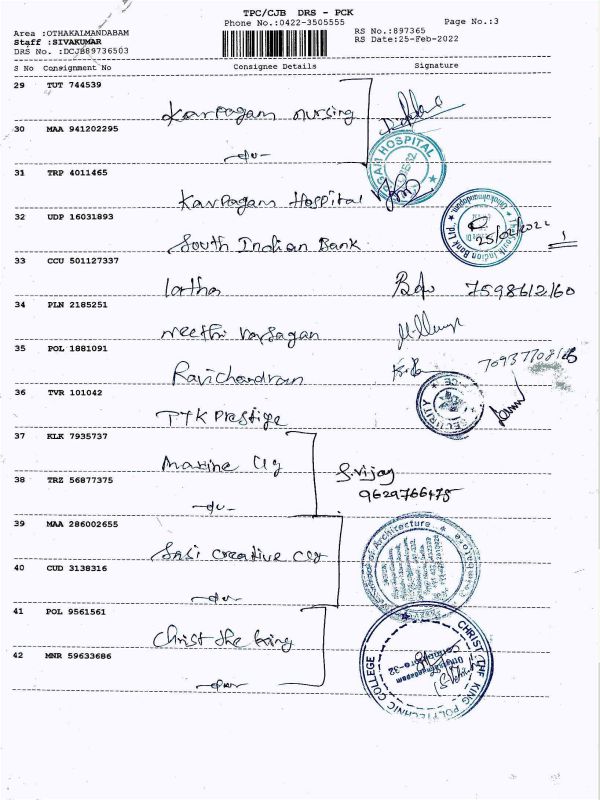 TPC/CJB DRS - PCK
Phone No.:0422-3505555
Page No.:3
Area :OTHAKALMANDABAM
RS No.:897365
Staff :SIVAKUMAR
RS Date:25-Feb-2022
DRS No. :DCJB89736503
S No Consignment No Consignee Details Signature
29 TUT 744539
Karpagam nursing
30 MAA 941202295
-do-
HOSPITAL
31 TRP 4011465
Karpagam Hospital
32 UDP 16031893
South Indian Bank
The South Indian Bank Ltd
25/02/2022
33 CCU 501127337
7598612160
34 PLN 2185251
35 POL 1881091
Ravichandran
36 TVR 101042
TTK Prestige
SECURITY
37 KLK 7935737
Marine Clg
S.Vijay
38 TRZ 56877375
-do-
9629766475
39 MAA 286002655
Sasi Creative Clg
of Architecture
40 CUD 3138316
-do-
41 POL 9561561
Christ the king
CHRIST THE KING POLYTECHNIC COLLEGE
42 MNR 59633686
-do-